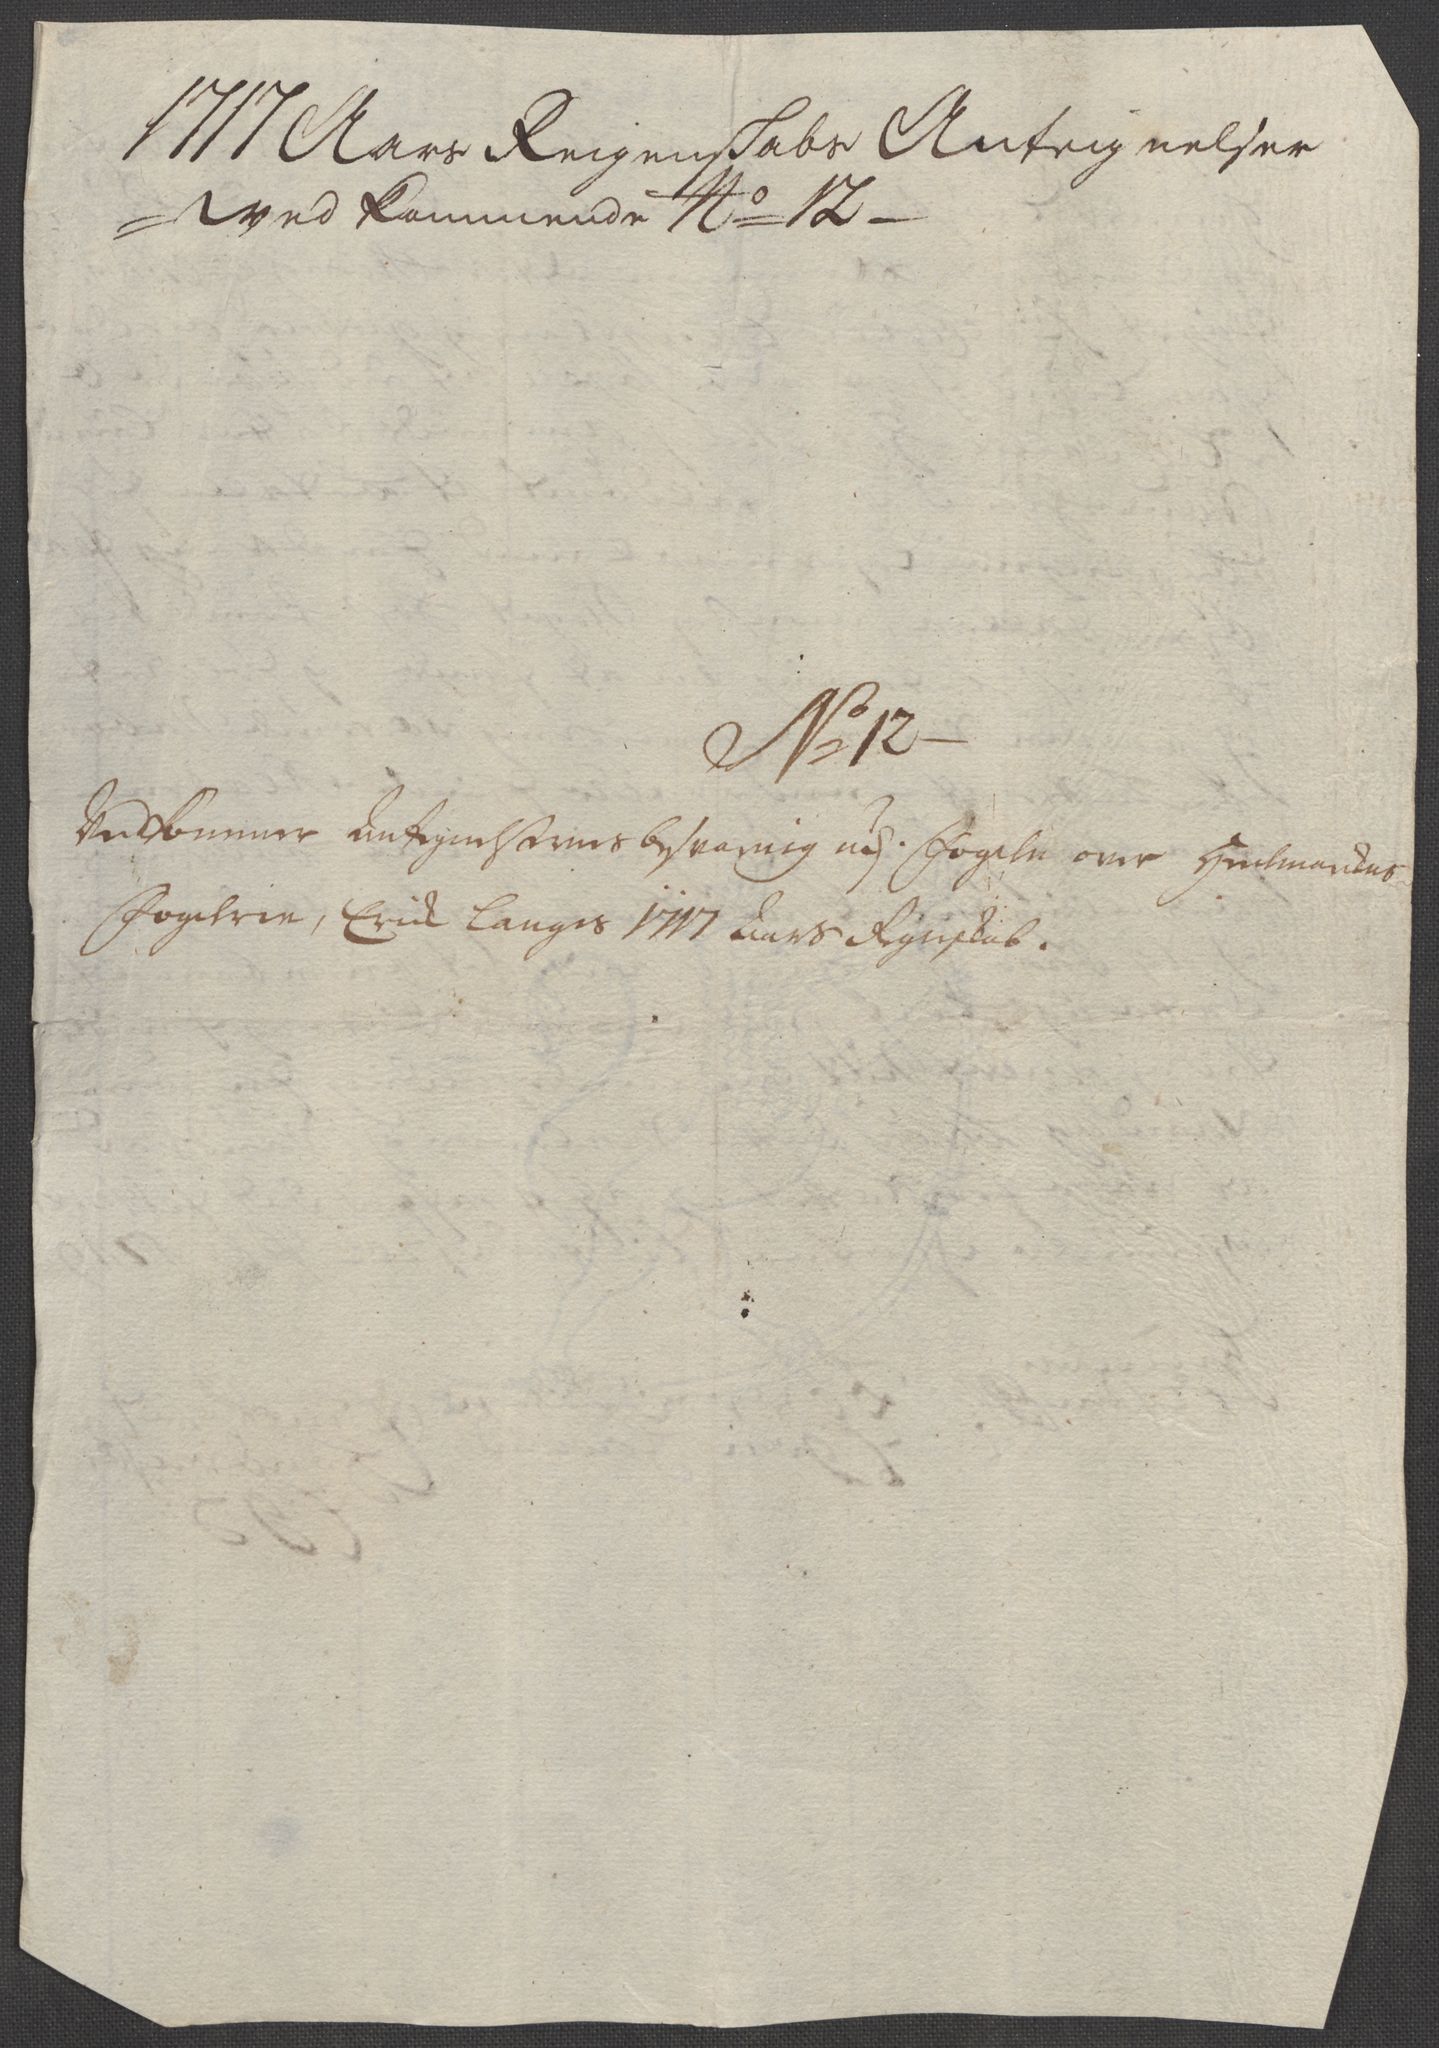 1717 Aars Reigenskabs Anteignelser
= Ved kommende No 12 -
No 12 -
Vedkommer Antegnelsernes besvaring Fogeln over Hedmarckens
Fogderie, Erick Langes 1717 Aars Regnskab.